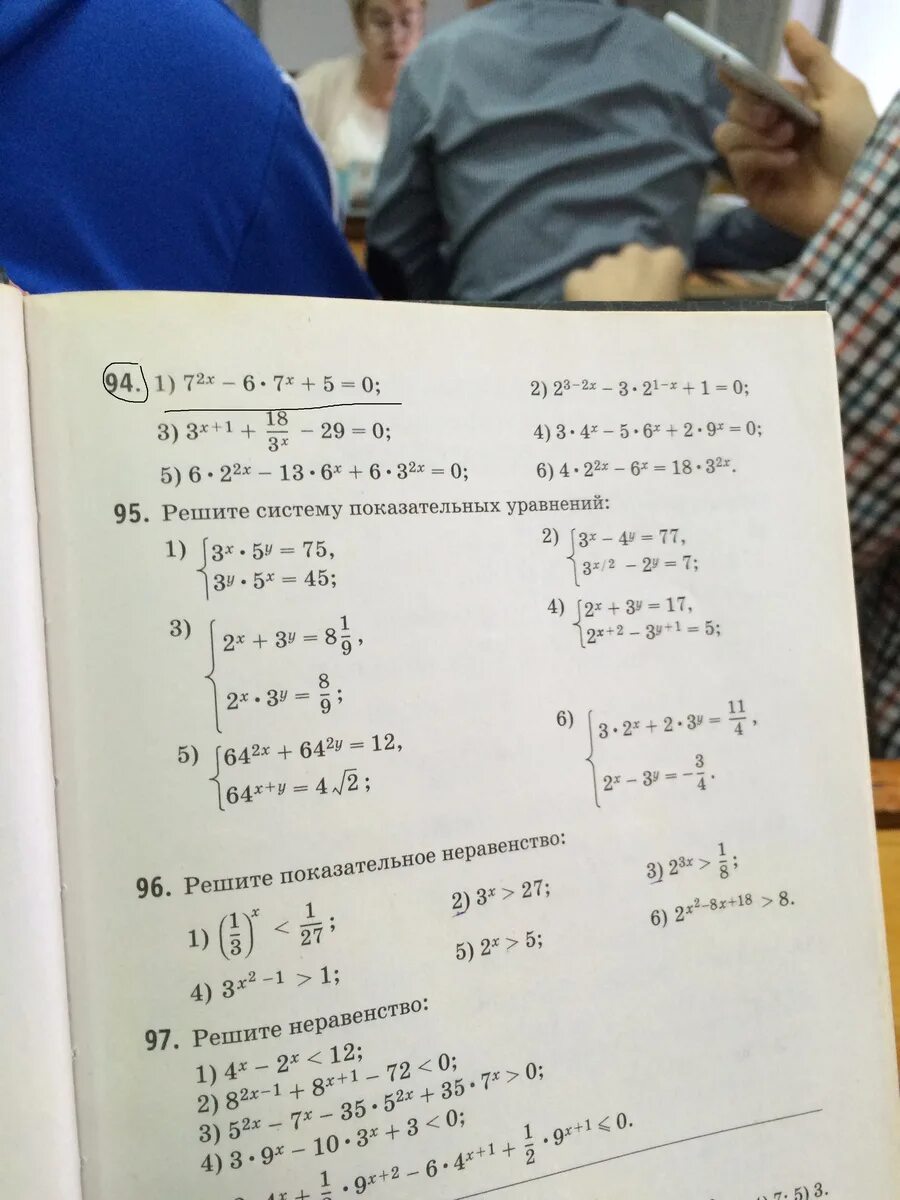 94. 1) 7^{2x} − 6 · 7^x + 5 = 0; 2) 2^{3−2x} − 3 · 2^{1−x} + 1 = 0;
3) 3^{x+1} + 18/3^x − 29 = 0; 4) 3 · 4^x − 5 · 6^x + 2 · 9^x = 0;
5) 6 · 2^{2x} − 13 · 6^x + 6 · 3^{2x} = 0; 6) 4 · 2^{2x} − 6^x = 18 · 3^{2x}.
95. Решите систему показательных уравнений:
1) { 3^x · 5^y = 75,
3^y · 5^x = 45;
2) { 3^x − 4^y = 77,
3^{x/2} − 2^y = 7;
3) { 2^x + 3^y = 8 1/9,
2^x · 3^y = 8/9;
4) { 2^x + 3^y = 17,
2^{x+2} − 3^{y+1} = 5;
5) { 64^{2x} + 64^{2y} = 12,
64^{x+y} = 4√2;
6) { 3 · 2^x + 2 · 3^y = 11/4,
2^x − 3^y = −3/4.
96. Решите показательное неравенство:
1) (1/3)^x < 1/27; 2) 3^x > 27; 3) 2^{3x} > 1/8;
4) 3^{x^2−1} > 1; 5) 2^x > 5; 6) 2^{x^2−8x+18} > 8.
97. Решите неравенство:
1) 4^x − 2^x < 12;
2) 8^{2x−1} + 8^{x+1} − 72 < 0;
3) 5^{2x} − 7^x − 35 · 5^{2x} + 35 · 7^x > 0;
4) 3 · 9^x − 10 · 3^x + 3 < 0;
4^x + 1/3 · 9^{x+2} − 6 · 4^{x+1} + 1/2 · 9^{x+1} ⩽ 0.
7; 5) 3.